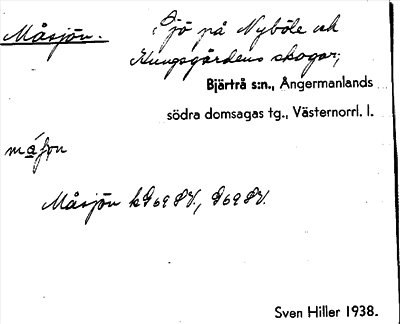 Måsjön. Sjö på Nyböle och
Kungsgårdens skogar;
Bjärtrå s:n., Ångermanlands
södra domsagas tg., Västernorrl. l.
Måsjön k D69 SV., D69 SV.
Sven Hiller 1938.